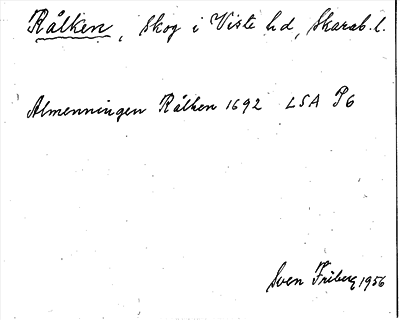 Rålken, Skog i Viste hd, Skarab. l.
Almenningen Rålken 1692 LSA P6
Sven Friberg 1956